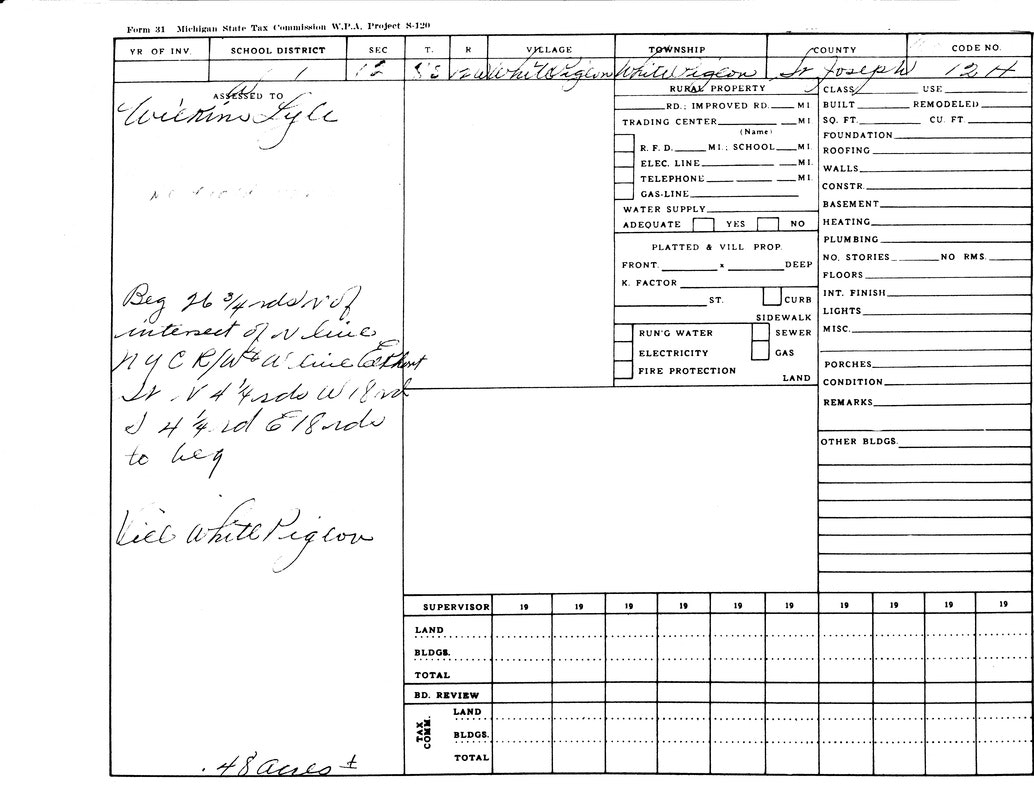 Form 31 Michigan State Tax Commission W.P.A. Project S-120
YR OF INV. SCHOOL DISTRICT SEC T. R VILLAGE TOWNSHIP COUNTY CODE NO.
1 12 8S 12W White Pigeon White Pigeon St Joseph 12 H
ASSESSED TO
Wilkins Lyle
Beg 26 3/4 rds N of
intersect of N line
N Y C R/W & W line Elkhart
St N 4 1/4 rds W 18 rd
S 4 1/4 rd E 18 rds
to beg
Vill White Pigeon
.48 acres ±
RURAL PROPERTY
RD.; IMPROVED RD. MI
TRADING CENTER MI.
(Name)
R. F. D. MI.; SCHOOL MI.
ELEC. LINE MI.
TELEPHONE MI.
GAS-LINE
WATER SUPPLY
ADEQUATE YES NO
PLATTED & VILL PROP.
FRONT. x DEEP
K. FACTOR
ST. CURB
SIDEWALK
RUN'G WATER SEWER
ELECTRICITY GAS
FIRE PROTECTION
LAND
CLASS USE
BUILT REMODELED
SQ. FT. CU. FT.
FOUNDATION
ROOFING
WALLS
CONSTR.
BASEMENT
HEATING
PLUMBING
NO. STORIES NO RMS.
FLOORS
INT. FINISH
LIGHTS
MISC.
PORCHES
CONDITION
REMARKS
OTHER BLDGS.
SUPERVISOR 19 19 19 19 19 19 19 19 19 19
LAND
BLDGS.
TOTAL
BD. REVIEW
TAX COMM.
LAND
BLDGS.
TOTAL